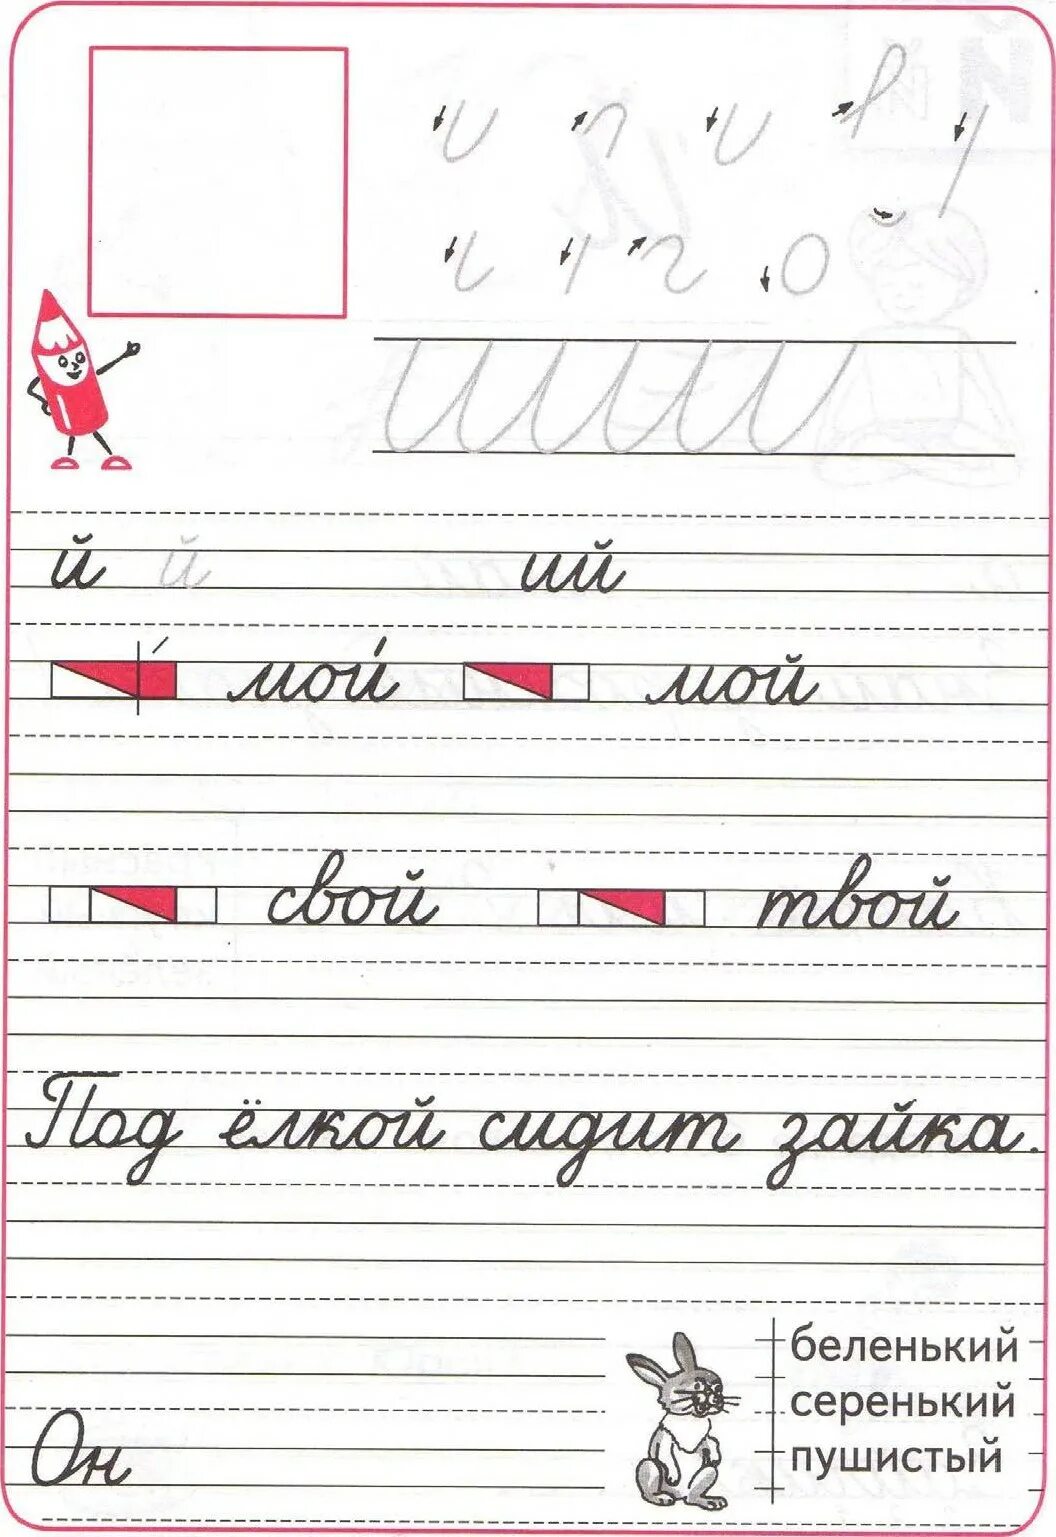 й й ий
мои́ мой
свой твой
Под ёлкой сидит зайка.
беленький
серенький
пушистый
Он